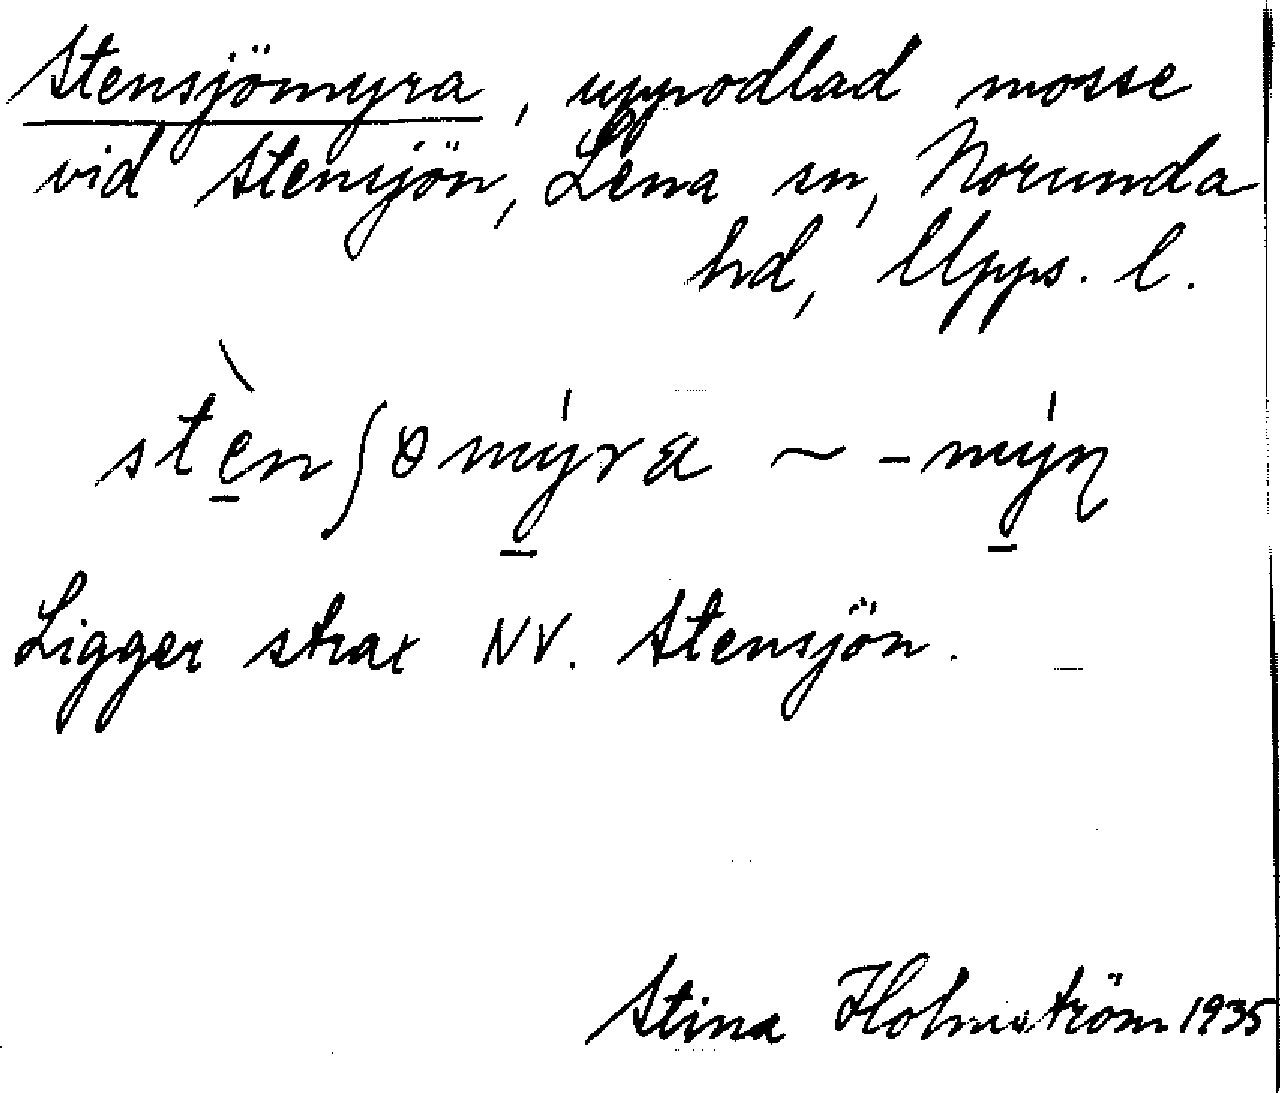 Stensjömyra, uppodlad mosse
vid Stensjön, Lena sn, Norunda
hd, Upps. l.
stè̱nʃɵmý̱ra ~ -mý̱ɳ
Ligger strax NV. Stensjön.
Stina Holmström 1935